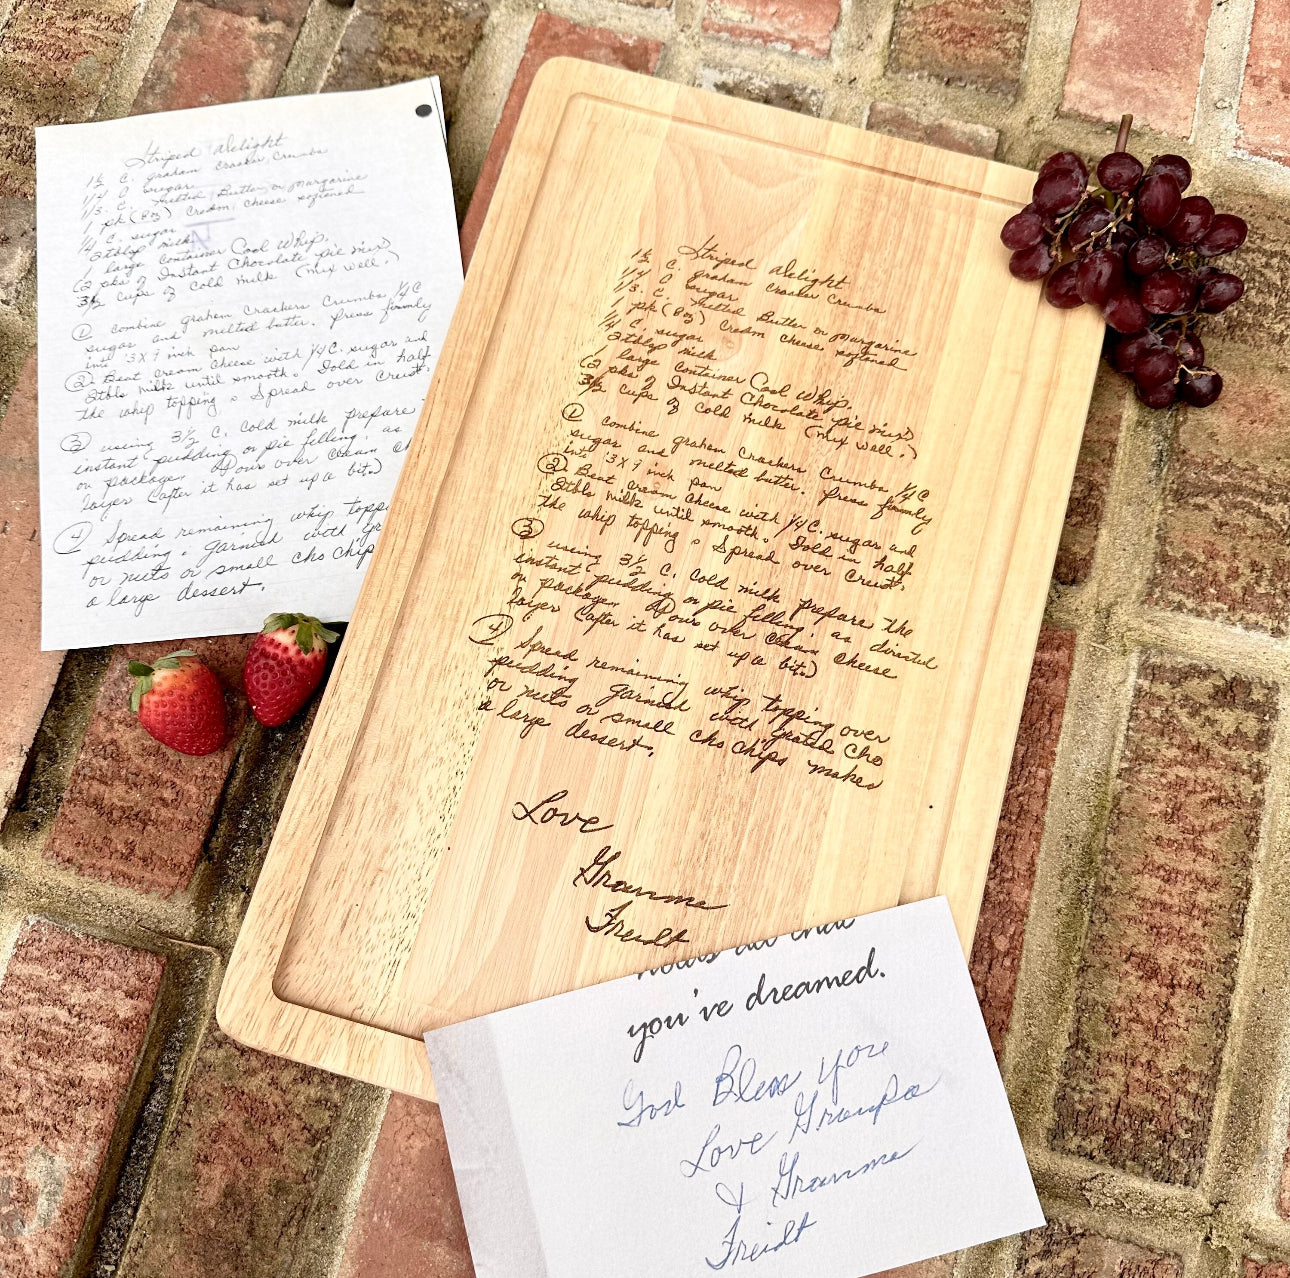 Striped Delight
1½ C. graham cracker crumbs
1/4 C sugar
1/3 C. melted Butter or margarine
1 pk (8oz) Cream cheese softened
1/4 C. sugar
2tblsp milk
1 large container Cool Whip.
(2 pks of Instant Chocolate pie mix)
3½ cups of cold milk (mix well.)
① combine graham crackers Crumbs 1/4 C
sugar and melted butter. press firmly
into 13 X 9 inch pan
② Beat cream cheese with 1/4 C. sugar and
2tbls milk until smooth. Fold in half
the whip topping Spread over Crust.
③ using 3½ C. cold milk prepare
instant pudding or pie filling. as
on package. Pours over cream ch
layer (after it has set up a bit.)
④ Spread remaining whip topp
pudding. garnish with gr
or nuts or small cho chip
a large dessert.
Striped Delight
1½ C. graham cracker crumbs
1/4 C sugar
1/3 C. melted Butter or margarine
1 pk (8oz) cream cheese softened
1/4 C. sugar
2tblsp milk
1 large container Cool Whip.
(2 pks of Instant Chocolate pie mix)
3½ cups of cold milk (mix well.)
① combine graham crackers Crumbs 1/4 C
sugar and melted butter. press firmly
into 13 X 9 inch pan
② Beat cream cheese with 1/4 C. sugar and
2tbls milk until smooth. Fold in half
the whip topping Spread over Crust.
③ using 3½ C. cold milk prepare the
instant pudding or pie filling. as directed
on package. Pours over cream cheese
layer (after it has set up a bit.)
④ Spread remaining whip topping over
pudding garnish with grated cho
or nuts or small cho chips makes
a large dessert.
Love
Gramma
Freidt
you've dreamed.
God Bless you
Love Grampa
& Gramma
Freidt